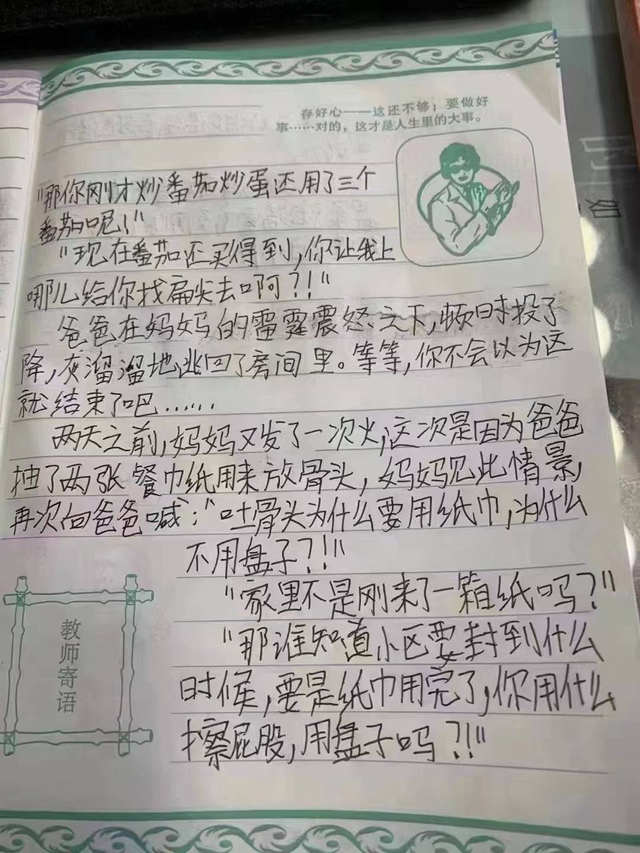 存好心——这还不够；要做好
事……对的，这才是人生里的大事。
"那你刚才炒番茄炒蛋还用了三个
番茄呢！"
"现在番茄还买得到，你让我上
哪儿给你找扁尖去啊？！"
爸爸在妈妈的雷霆震怒之下，顿时投了
降，灰溜溜地逃回了房间里。等等，你不会以为这
就结束了吧……
两天之前，妈妈又发了一次火，这次是因为爸爸
抽了两张餐巾纸用来放骨头，妈妈见此情景，
再次向爸爸喊："吐骨头为什么要用纸巾，为什么
不用盘子？！"
"家里不是刚来了一箱纸吗？"
"那谁知道小区要封到什么
时候，要是纸巾用完了，你用什么
擦屁股，用盘子吗？！"
教师寄语